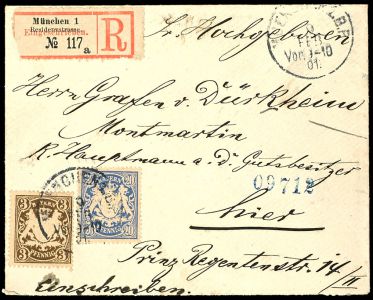 München 1
Residenzstrasse.
Eingeschrieben.
№ 117
a
R
Sr. Hochgeboren
Vor. 9-10
01.
Herrn Grafen von Dürkheim
Montmartin
K. Hauptmann a. D. Gutsbesitzer
09712
hier
Prinz Regentenstr. 14/II
Einschreiben.
BAYERN
3 3
PFENNIG
BAYERN
20 20
PFENNIG